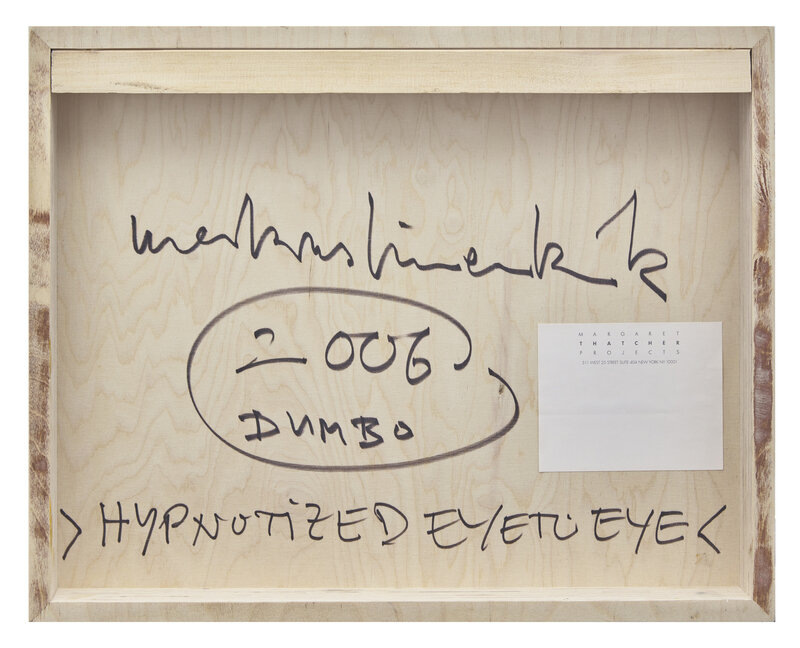 2006
DUMBO
MARGARET
THATCHER
PROJECTS
511 WEST 25 STREET SUITE 404 NEW YORK NY 10001
>HYPNOTiZED EYE TO EYE<